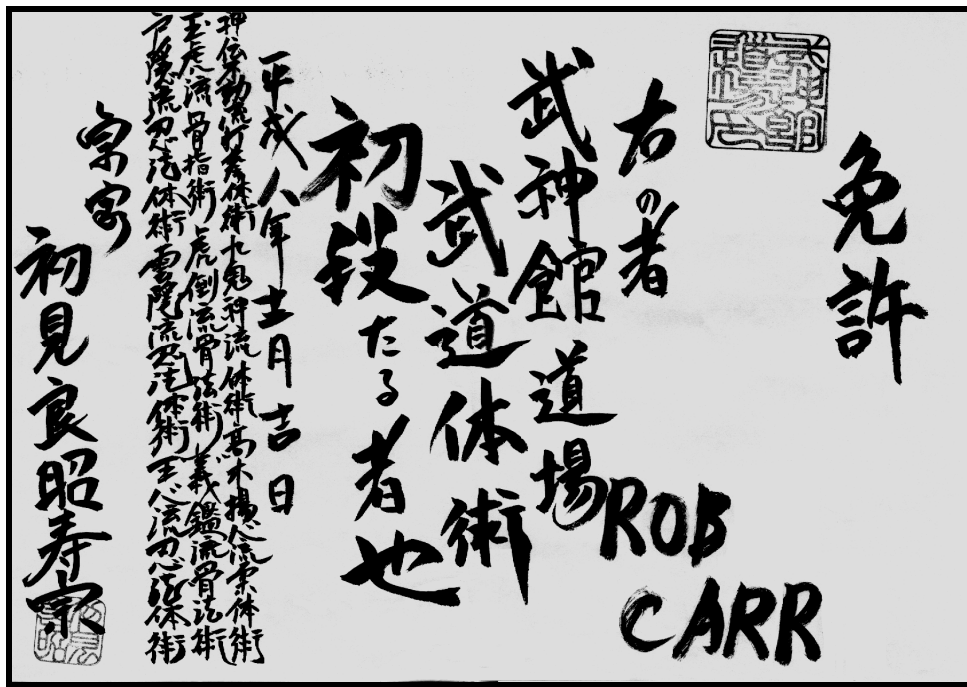 免許
右の者
ROB
CARR
武神館道場
武道体術
初段たる者也
平成八年十一月吉日
神伝不動流打拳体術九鬼神流体術高木揚心流柔体術
玉虎流骨指術虎倒流骨法術義鑑流骨法術
戸隠流忍法体術雲隠流忍法体術玉心流忍法体術
宗家
初見良昭寿宗